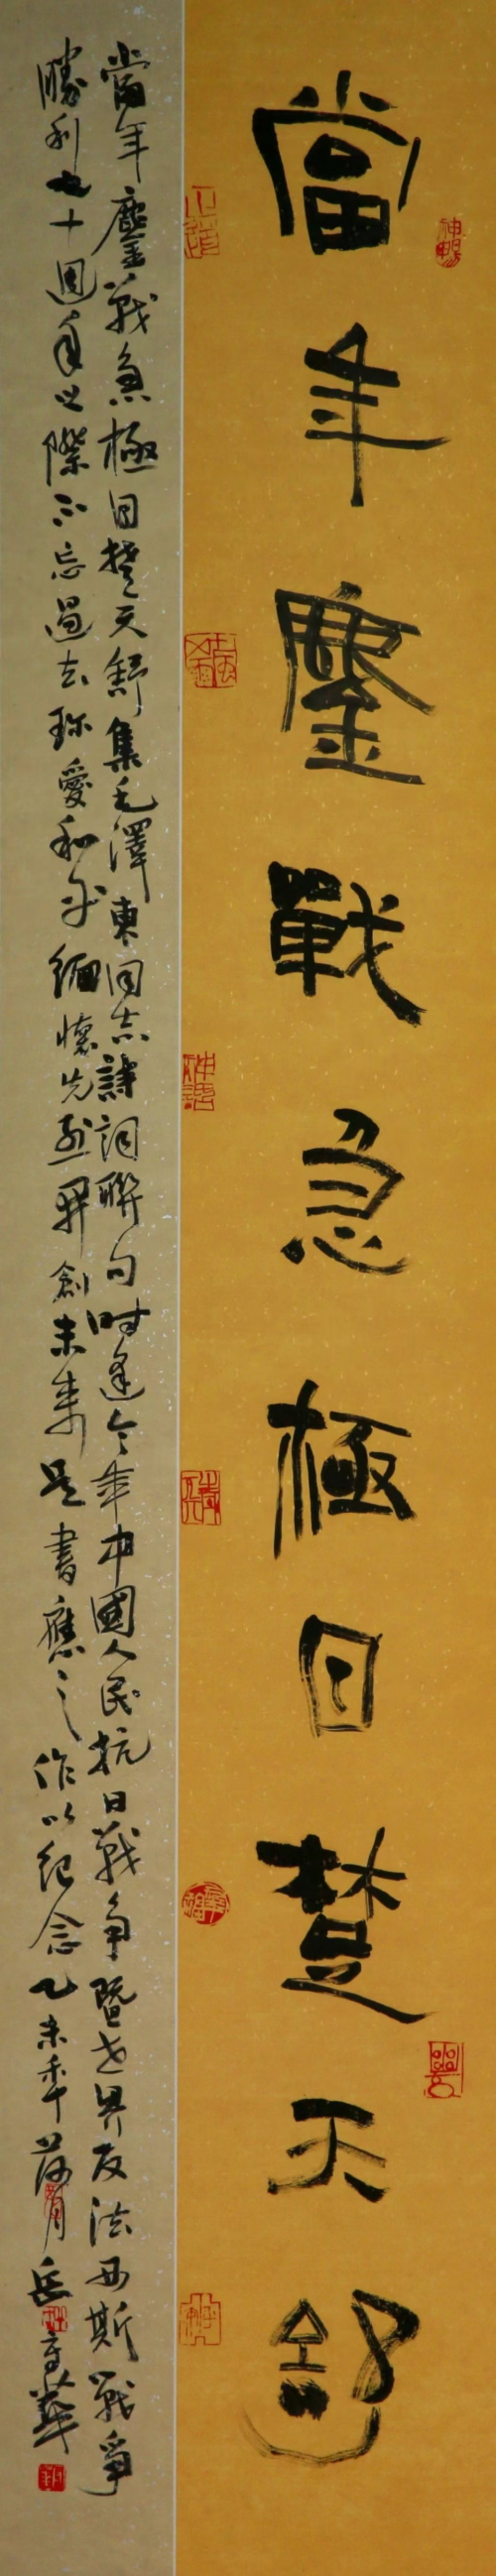 當年鏖戰急極目楚天舒
當年鏖戰急極目楚天舒集毛澤東同志詩詞聯句時逢今年中國人民抗日戰争暨世界反法西斯戰爭
勝利七十週年之際不忘過去珍愛和平緬懷先烈開創未來是書應之作以紀念乙未年荷月岳彥華
神暢